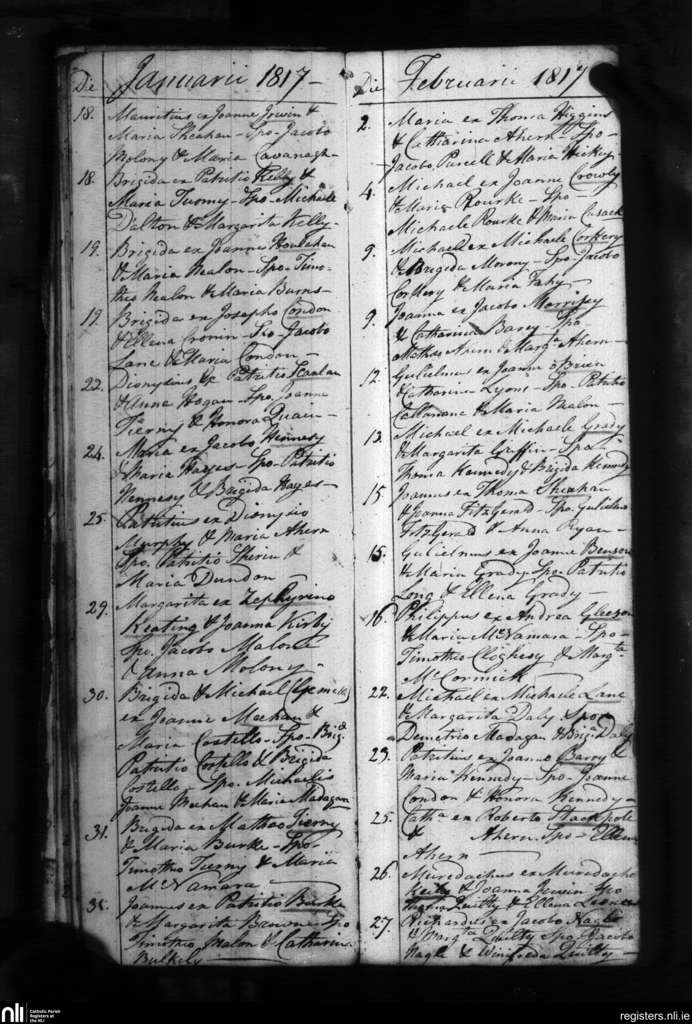 Die Januarii 1817 –
18. Mauritius ex Joanne Irwin &
Maria Sheahan – Spo – Jacobo
Molony & Maria Cavanagh –
18. Brigida ex Patritio Kelly &
Maria Tuomy – Spo – Michaele
Dalton & Margarita Kelly –
19. Brigida ex Joanne Houlahan
& Maria Nealon – Spo – Timo-
theo Nealon & Maria Burns –
19. Brigida ex Josepho Condon
& Ellena Cronin – Spo – Jacobo
Lane & Maria Condon –
22. Dionysius ex Patritio Scanlan
& Anna Hogan – Spo. Joanne
Tierny & Honora Quain –
24. Maria ex Jacobo Hennesy
& Maria Hayes – Spo – Patritio
Hennesy & Brigida Hayes –
25. Patritius ex Dionysio
Murphy & Maria Ahern
Spo. Patritio Sherin &
Maria Dundon –
29. Margarita ex Zephyrino
Keating & Joanna Kirby
Spo. Jacobo Malone
& Anna Molony –
30. Brigida & Michael (Gemelli)
ex Joanne Meehan &
Maria Costello – Spo – Brigd
Patritio Costello & Brigida
Costello – Spo. Michaelis
Joanne Meehan & Maria Madagan
31. Brigida ex Mathæo Tierny
& Maria Burke – Spo –
Timotheo Tierny & Maria
McNamara
31. Joannes ex Patritio Burke
& Margarita Browne – Spo
Timotheo Nealon & Catharina
Bulkely
Die Februarii 1817
2. Maria ex Thoma Higgins
& Catharina Ahern – Spo –
Jacobo Purcell & Maria Hickey –
4. Michael ex Joanne Crowly
& Maria Rourke – Spo –
Michaele Rourke & Maria Cusack
9. Michael ex Michaele Corkery
& Brigida Morony – Spo – Jacobo
Corkery & Maria Fahy
9. Joanna ex Jacobo Morrisey
& Catharina Barry – Spo –
Matheo Ahern & Margta Ahern –
12. Gulielmus ex Joanne o Brien
& Catharina Lyons – Spo. Patritio
& Maria Nealon –
13. Michael ex Michaele Grady
& Margarita Griffin – Spo –
Thoma Kennedy & Brigida Kennedy
15 Joannes ex Thoma Sheahan
& Joanna FitzGerald – Spo. Gulielmo
FitzGerald & Anna Ryan –
15. Gulielmus ex Joanne Benson
& Maria Grady – Spo – Patritio
Long & Ellena Grady –
16. Philippus ex Andrea Gleeson
& Maria McNamara – Spo –
Timotheo Cloghesy & Margta
McCormick
22. Michael ex Michaele Lane
& Margarita Daly – Spo –
Demetrio Madagan & Brigda Daly
23. Patritius ex Joanne Barry &
Maria Kennedy – Spo – Joanne
Condon & Honora Kennedy –
25. Catha ex Roberto Stackpole
& Ahern. Spo – Ellena
Ahern
26. Muredachus ex Muredacho
Kelly & Joanna Irwin Spo
Quilty & Ellena
27. Richardus ex Jacobo Nagle
& Margta Quilty Spo. Jacobo
Nagle & Winefreda Quilty –
nli Catholic Parish
Registers at
the NLI
registers.nli.ie